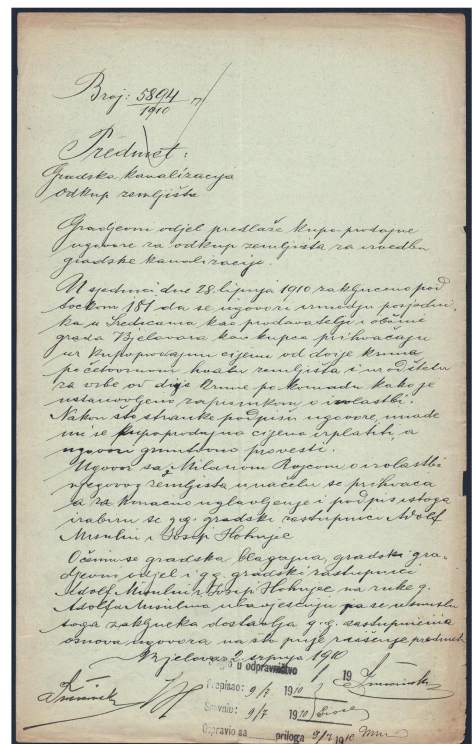 Broj: 5894
1910
Predmet:
Gradska kanalizacija
odkup zemljišta
Gradjevni odjel predlaže kupoprodajne
ugovore za odkup zemljišta za izvedbu
gradske kanalizacije.
U sjednici dne 28. lipnja 1910 zaključeno pod
točkom 181 da se ugovori izmedju posjedni-
ka u Sredicama kao prodavatelji i obćine
grada Bjelovara kao kupca prihvaćaju
uz kupoprodajnu cijenu od dvije krune
po četvornom hvatu zemljišta i uz odštetu
za vrbe od dvije krune po komadu kako je
ustanovljeno zapisnikom o izvlastbi.
Nakon što stranke podpišu ugovore, imade
im se kupoprodajna cijena izplatiti, a
ugovori gruntovno provesti.
Ugovor sa Milanom Rojcom o izvlastbi
njegovog zemljišta u načelu se prihvaća
a za konačno uglavljenje i podpis istoga
izabiru se g.g. gradski zastupnici Adolf
Misulin i Josip Hohnjec
O čemu se gradska blagajna, gradski gra-
djevni odjel i g.g. gradski zastupnici
Adolf Misulin i Josip Hohnjec na ruke g.
Adolfa Misulina uvjesćuju pa se u smislu
toga zaključka dostavlja g.g. zastupnicima
osnova ugovora na što prije rješenje predmeta
Bjelovar 2. srpnja 1910
u odpravničtvo 19
Prepisao: 9/7 1910
Sravnio: 9/7 1910
Opravio sa priloga 9/7 1910